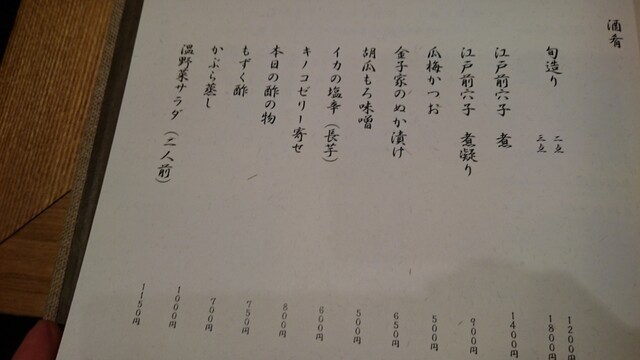 酒肴
旬造り 二点 1200円
三点 1800円
江戸前穴子 煮 1400円
江戸前穴子 煮凝り 900円
瓜梅かつお 500円
金子家のぬか漬け 650円
胡瓜もろ味噌 500円
イカの塩辛(長芋) 600円
キノコゼリー寄せ 800円
本日の酢の物 750円
もずく酢 700円
かぶら蒸し 1000円
温野菜サラダ(二人前) 1150円